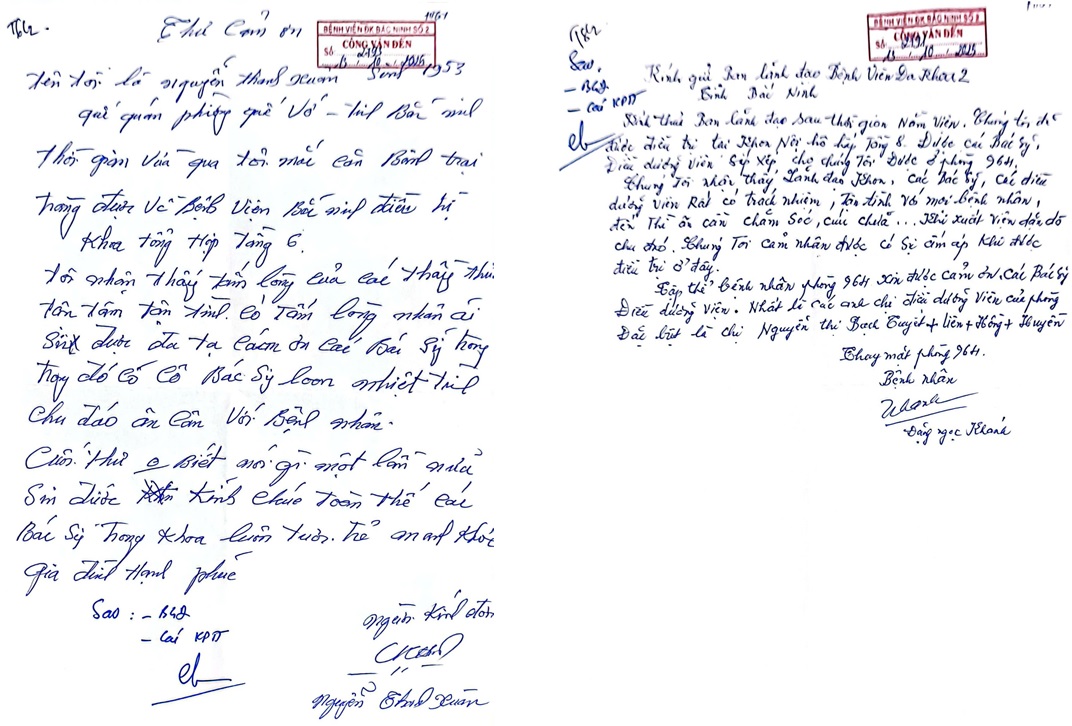 TGĐ2.
Thư Cảm ơn
BỆNH VIỆN ĐK BẮC NINH SỐ 2
CÔNG VĂN ĐẾN
Số 2193
13 / 10 / 2025
tên tôi là nguyễn thanh xuân Sinh 1953
quê quán phường quế Võ - tỉnh Bắc ninh
thời gian vừa qua tôi mắc căn Bệnh trại
trọng được về Bệnh Viện Bắc ninh điều trị
Khoa tổng Hợp tầng 6.
tôi nhận thấy tấm lòng của các thầy thuốc
tận tâm tận tình có tấm lòng nhân ái
Sin được đa tạ cảm ơn các Bác Sỹ trong
trong đó có cô Bác Sỹ loan nhiệt tình
chu đáo ân cần Với Bệnh nhân.
Cuối thư o Biết nói gì một lần nữa
Sin được kính chúc toàn thể các
Bác Sỹ trong khoa luôn tươi trẻ mạnh khỏe
gia đình Hạnh phúc
Sao : - BGĐ
- Các KPTT
người kính đơn
nguyễn Thanh xuân
Sao.
- BGĐ
- Các KPTT
BỆNH VIỆN ĐK BẮC NINH SỐ 2
CÔNG VĂN ĐẾN
Số 2191
13 / 10 / 2025
Kính gửi Ban lãnh đạo Bệnh Viện Đa Khoa 2
Tỉnh Bắc Ninh
Kính thưa Ban lãnh đạo sau thời gian Nằm Viện. Chúng tôi đã
được điều trị tại Khoa Nội hô hấp Tầng 8. Được các Bác Sỹ,
Điều dưỡng Viên Sắp Xếp cho chúng Tôi Được ở phòng 964.
Chúng Tôi nhận thấy Lãnh đạo Khoa, các Bác Sỹ, các điều
dưỡng Viên Rất có trách nhiệm, Tận tình Với mọi bệnh nhân,
đến Thế ân cần chăm Sóc, cứu chữa... Khi xuất Viện dặn dò
chu đáo. Chúng Tôi cảm nhận được có Sự ấm áp Khi được
điều trị ở đây.
Tập thể bệnh nhân phòng 964 Xin được cảm ơn. Các Bác Sỹ
Điều dưỡng Viên. Nhất là các anh chị điều dưỡng Viên của phòng
Đặc biệt là chị Nguyễn thị Bạch Tuyết + Liên + Hồng + Huyền
Thay mặt phòng 964.
Bệnh nhân
Khanh
Đặng ngọc Khánh